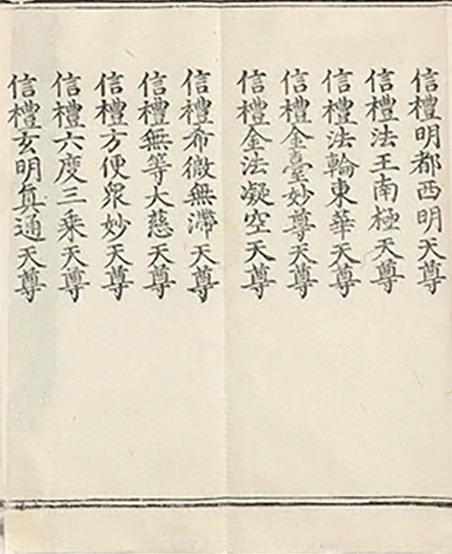 信禮明都西明天尊
信禮法王南極天尊
信禮法輪東華天尊
信禮金臺妙尊天尊
信禮金法凝空天尊
信禮希微無滯天尊
信禮無等大慈天尊
信禮方便眾妙天尊
信禮六度三乘天尊
信禮玄明真通天尊